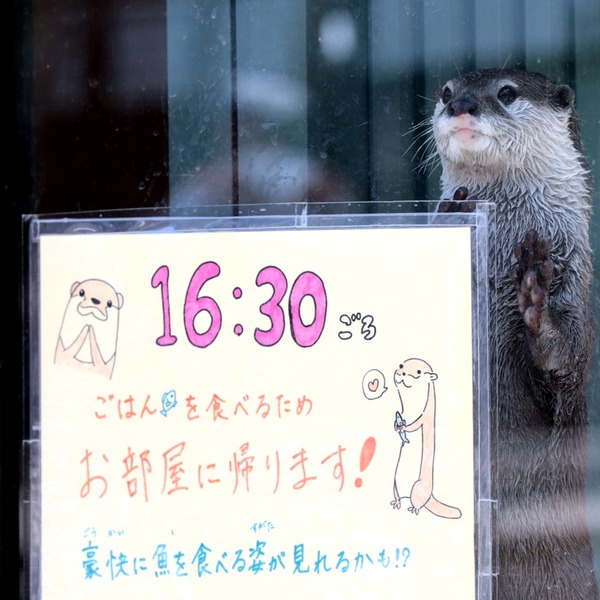 16:30ごろ
ごはんを食べるため
お部屋に帰ります!
ごうかい すがた
豪快に魚を食べる姿が見れるかも!?